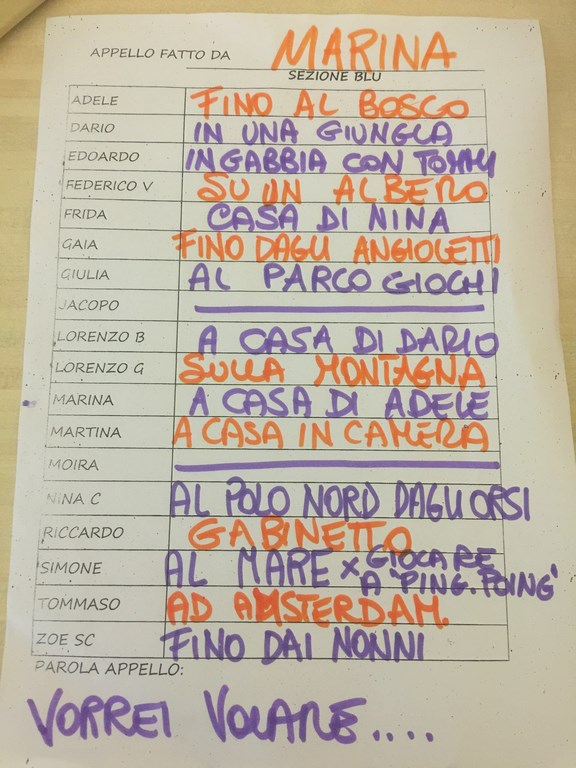 APPELLO FATTO DA MARINA
SEZIONE BLU
ADELE FINO AL BOSCO
DARIO IN UNA GIUNGLA
EDOARDO IN GABBIA CON TOMMY
FEDERICO V SU UN ALBERO
FRIDA CASA DI NINA
GAIA FINO DAGLI ANGIOLETTI
GIULIA AL PARCO GIOCHI
JACOPO
LORENZO B A CASA DI DARIO
LORENZO G SULLA MONTAGNA
MARINA A CASA DI ADELE
MARTINA A CASA IN CAMERA
MOIRA
NINA C AL POLO NORD DAGLI ORSI
RICCARDO GABINETTO
SIMONE AL MARE x GIOCARE
A 'PING.POING'
TOMMASO AD AMSTERDAM.
ZOE SC FINO DAI NONNI
PAROLA APPELLO:
VORREI VOLARE....